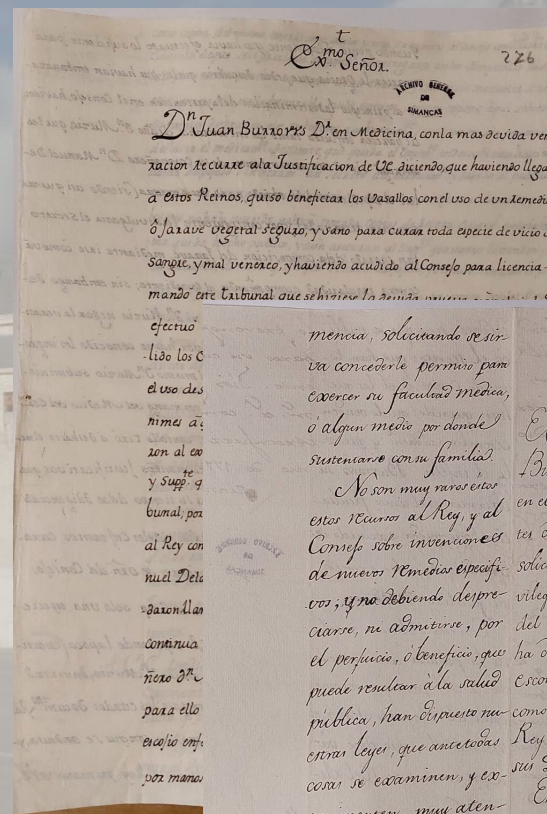 t
Ex.mo Señor.
226
ARCHIVO GENERAL
DE
SIMANCAS
Dn. Juan Burrows Dr. en Medicina, con la mas devida ven
racion recurre ala Justificacion de VE. diciendo, que haviendo llega
à estos Reinos, quiso beneficiar los Vasallos con el uso de un Remedi
ô Jarave vegetal seguro, y sano para curar toda especie de vicio d
Sangre, y mal venereo, y haviendo acudido al Consejo para licencia
mandó este tribunal que se hiziese la devida prueva
efectuó
lido los C
el uso de s
nimes a
ron al ex
y Supp.te q
bunal; por
al Rey con
nuel Dela
daron llan
continua
ñero dn.
para ello
escolio enf
por manos
mencia, solicitando se sir-
va concederle permiso para
exercer su facultad medica,
ó algun medio por donde
sustentarse con su familia.
No son muy raros estos
estos recursos al Rey, y al
Consejo sobre invenciones
de nuevos remedios especifi-
cos; y no debiendo despre-
ciarse, ni admitirse, por
el perjuicio, ò beneficio, que
puede resultar à la salud
pública, han dispuesto nu-
estras leyes, que ante todas
cosas se examinen, y ex-
perimenten muy aten-
ARCHIVO GENERAL
SIMANCAS
Bu
en el
tes
solic
vileg
del
ha
escon
como
Rey
sus